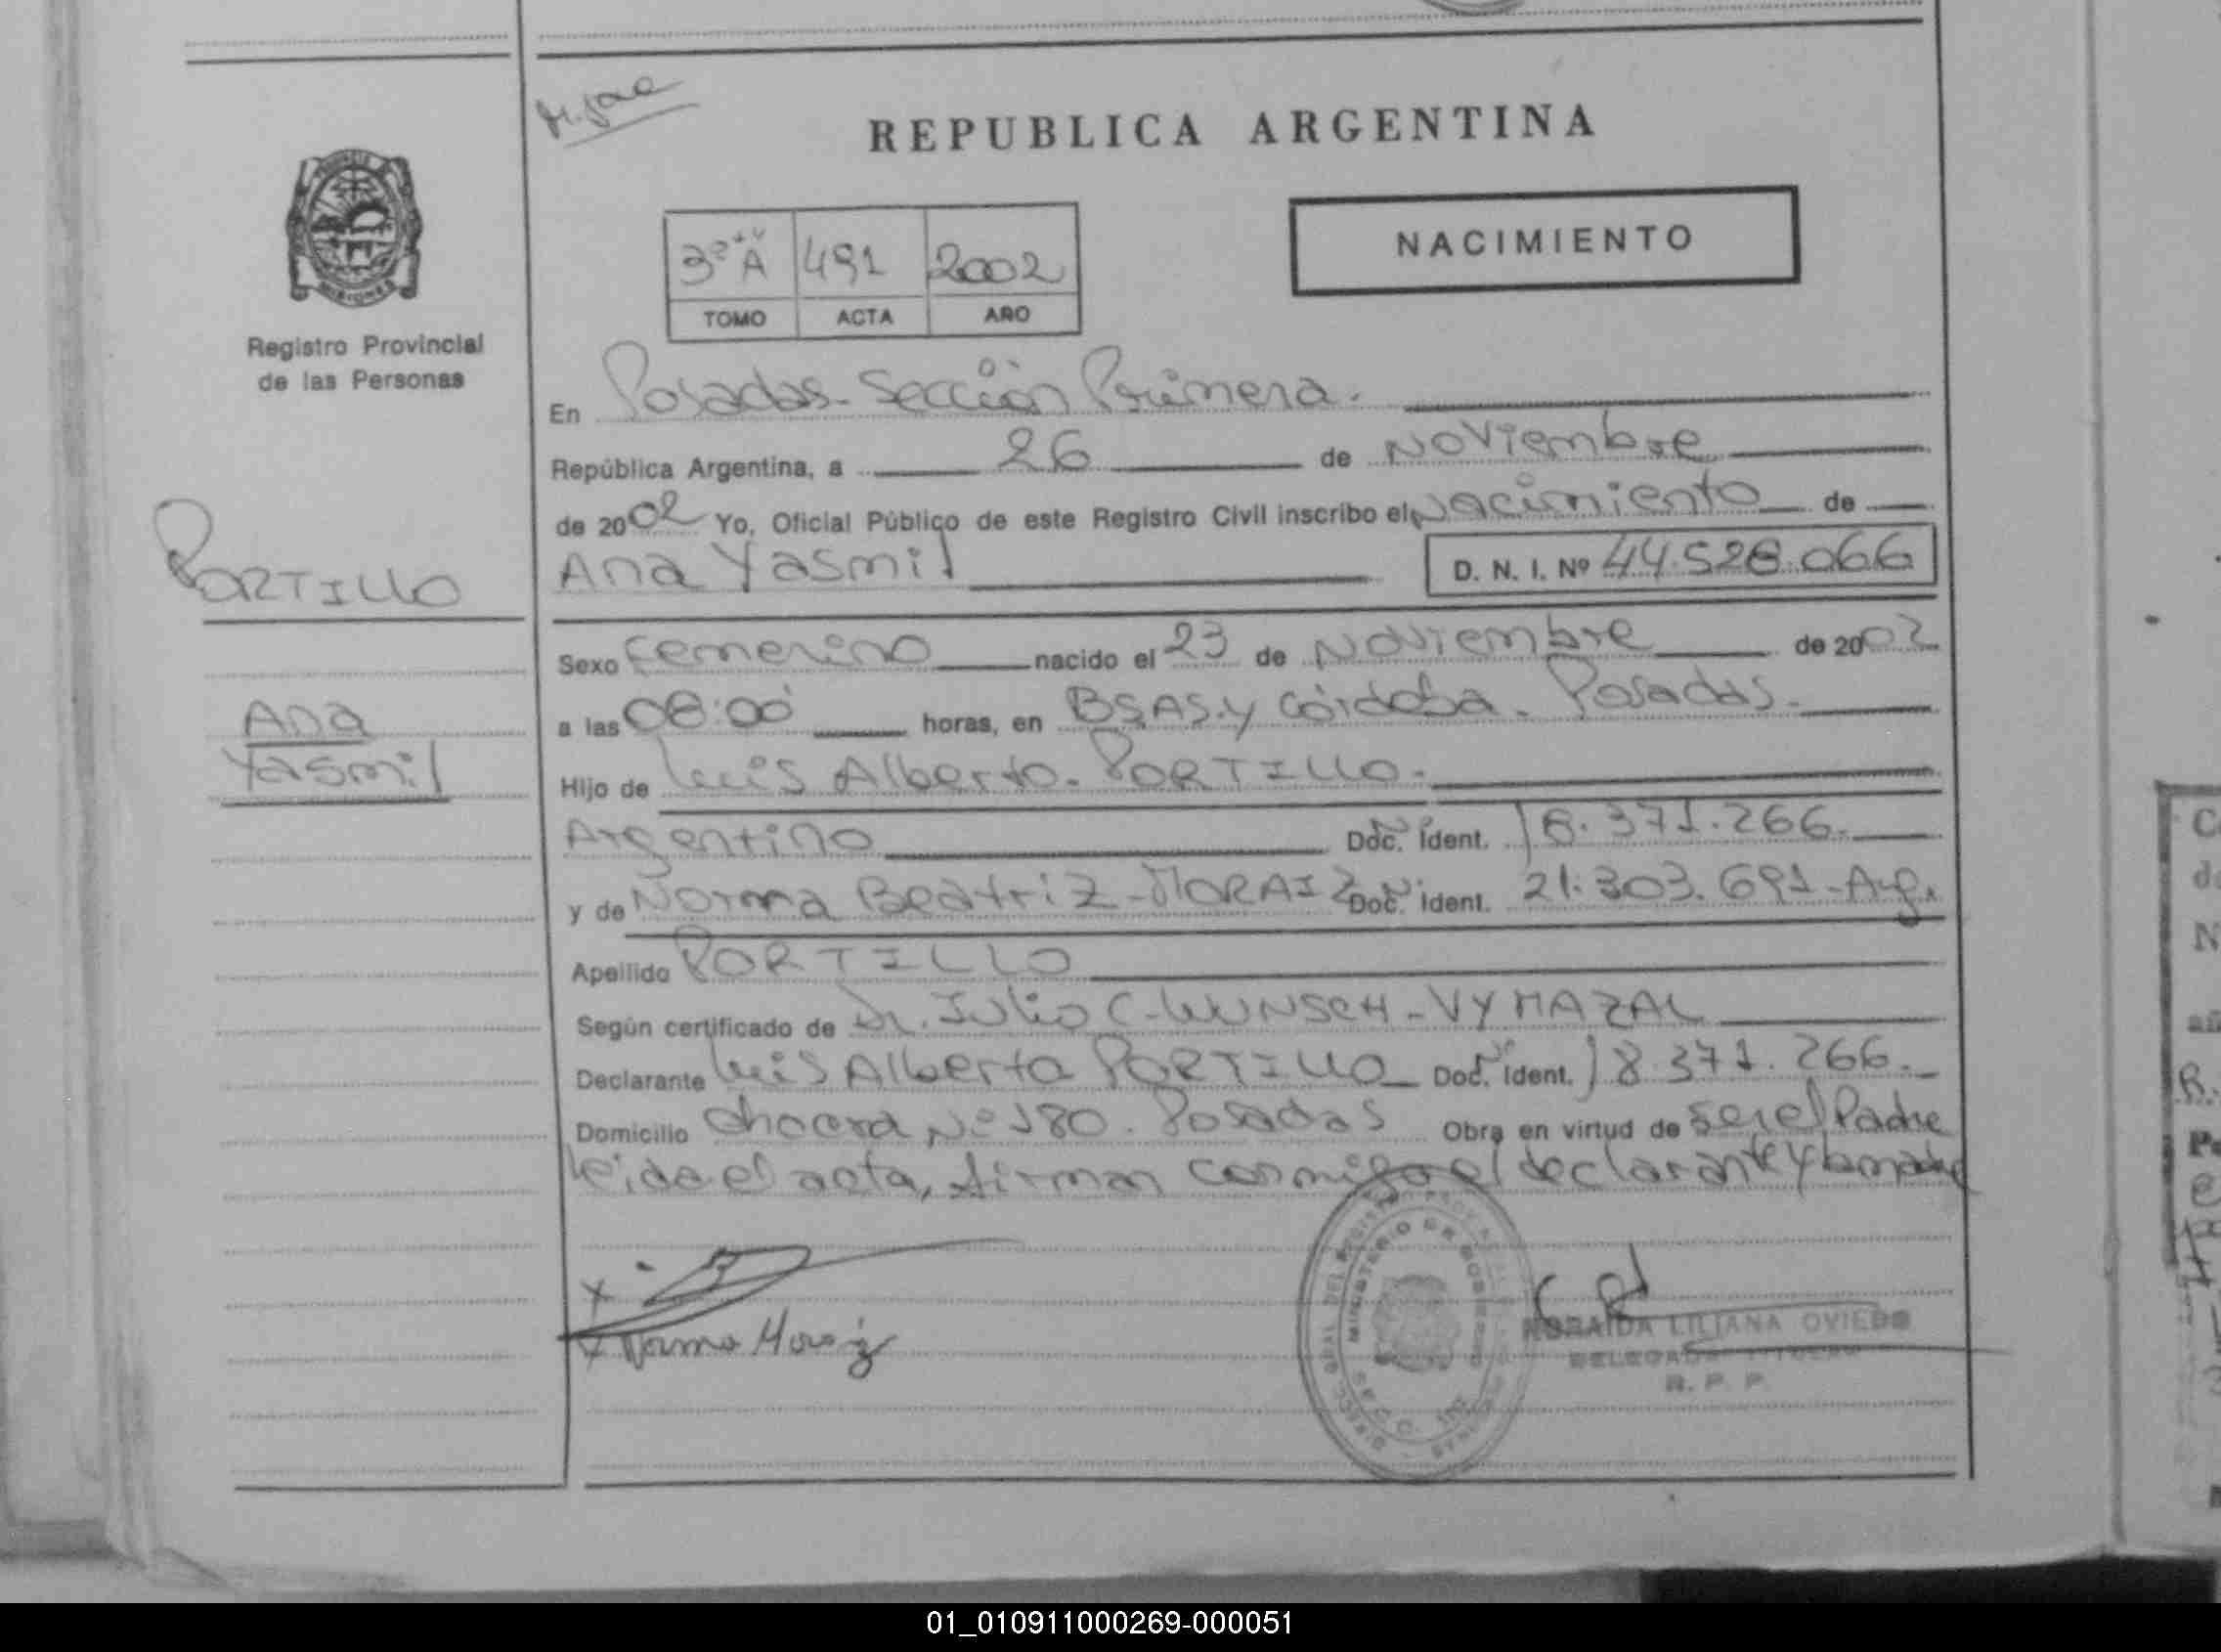 REPUBLICA ARGENTINA
NACIMIENTO
3º "A" 491 2002
TOMO ACTA AÑO
Registro Provincial
de las Personas
PORTILLO
Ana
Yasmil
En Posadas - Sección Primera.
República Argentina, a 26 de Noviembre
de 2002 Yo, Oficial Público de este Registro Civil inscribo el Nacimiento de
Ana Yasmil D. N. I. Nº 44.528.066
Sexo femenino nacido el 23 de Noviembre de 2002
a las 08:00 horas, en BSAS. y Córdoba. Posadas.
Hijo de Luis Alberto - PORTILLO.
Argentino Doc. Ident. 18.371.266.
y de Norma Beatriz - MORAIZ Doc. Ident. 21.303.691 - Arg.
Apellido PORTILLO
Según certificado de Dr. Julio C. WUNSCH - VYMAZAL
Declarante Luis Alberto PORTILLO Doc. Ident. 18.371.266.
Domicilio Chacra Nº 180. Posadas Obra en virtud de ser el Padre
leida el acta, firman conmigo el declarante y la madre
x
x Norma Moraiz
MINISTERIO DE GOBIERNO
LILIANA OVIEDO
DELEGADA TITULAR
R. P. P.
01_010911000269-000051